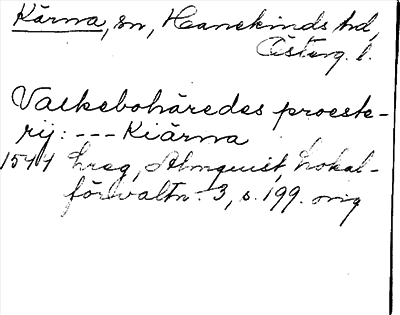 Kärna, sn, Hanekinds hd,
Österg. l.
Valkebohäredes proeste-
rij: --- Kiärna
1544 hreg, Almquist, Lokal-
förvaltn. 3, s. 199. orig